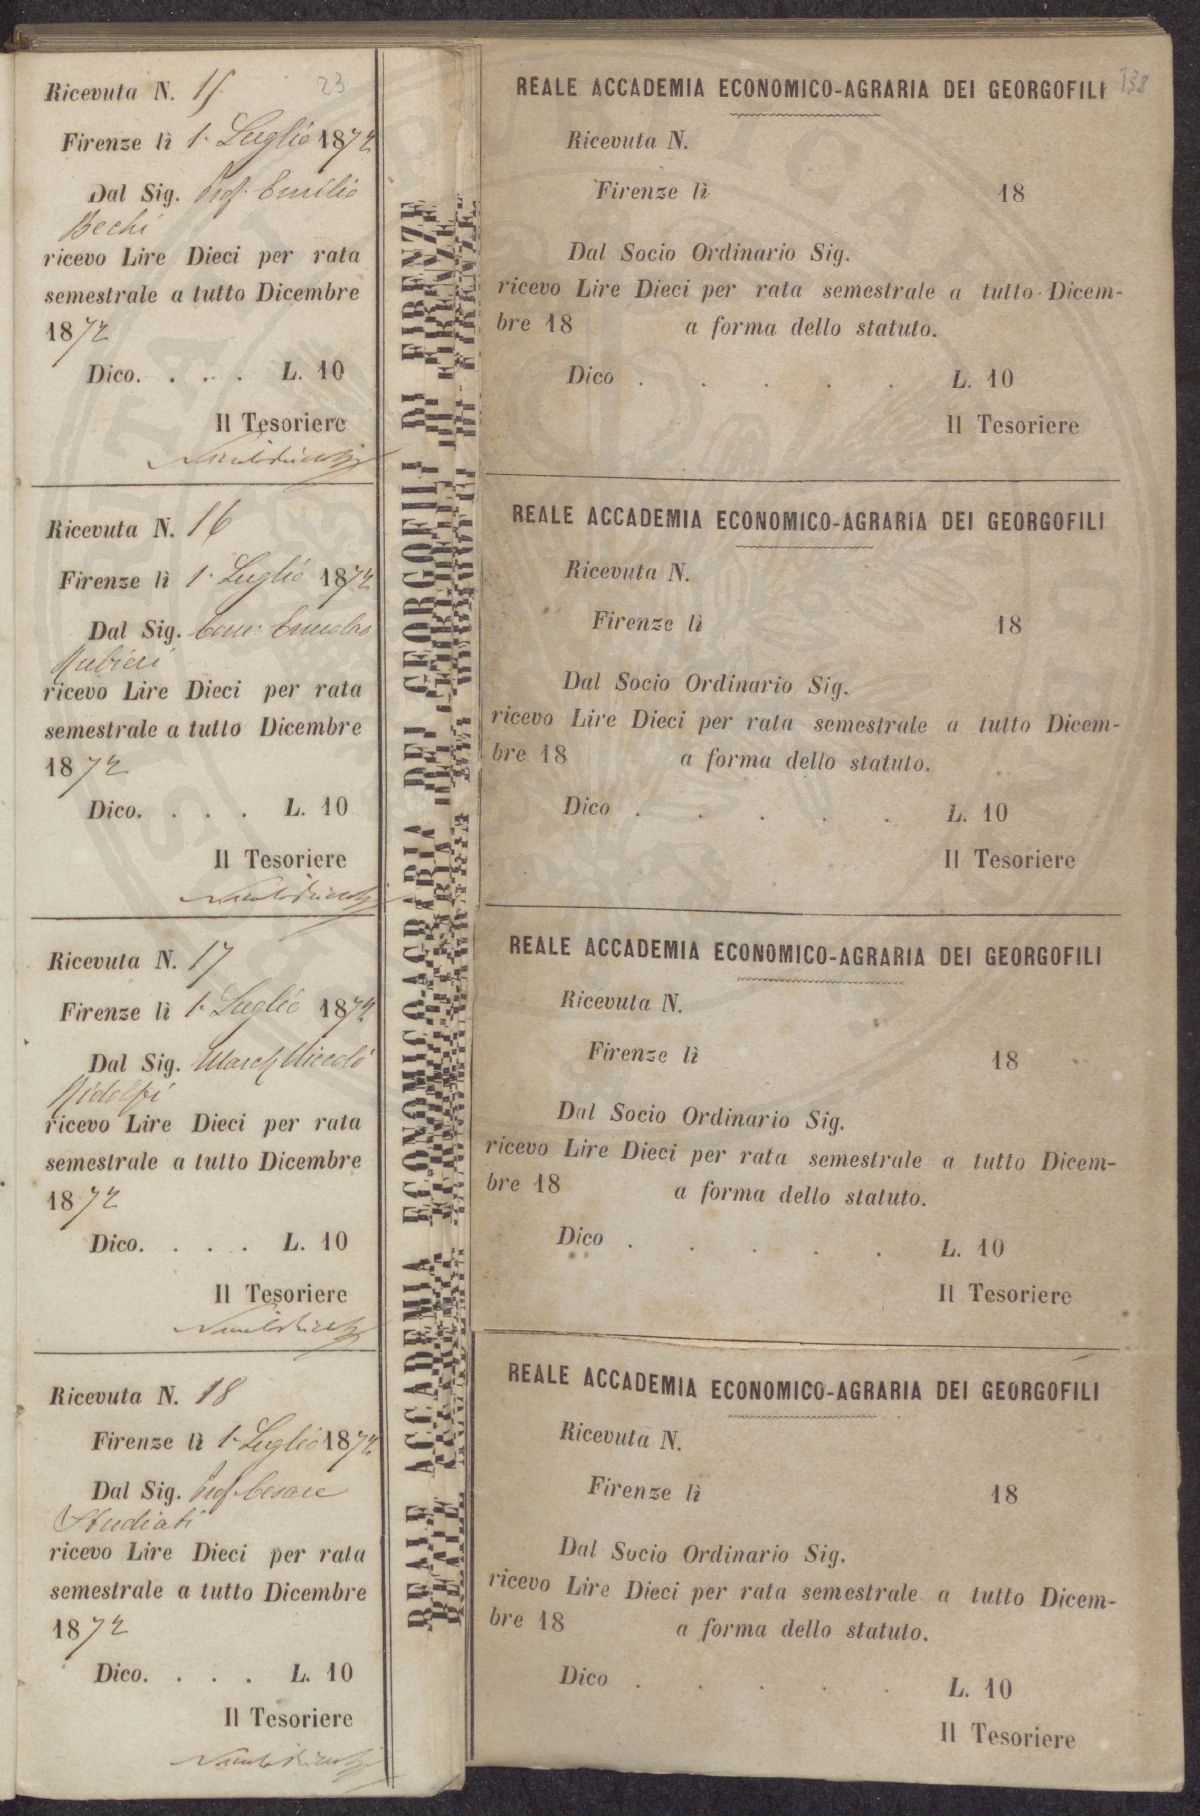 23
Ricevuta N. 15
Firenze lì 1. Luglio 1872
Dal Sig. Prof. Emilio
Bechi
ricevo Lire Dieci per rata
semestrale a tutto Dicembre
1872
Dico. . . . L. 10
Il Tesoriere
Ricevuta N. 16
Firenze lì 1. Luglio 1872
Dal Sig.
Rubieri
ricevo Lire Dieci per rata
semestrale a tutto Dicembre
1872
Dico. . . . L. 10
Il Tesoriere
Ricevuta N. 17
Firenze lì 1. Luglio 1872
Dal Sig. March Niccolò
Ridolfi
ricevo Lire Dieci per rata
semestrale a tutto Dicembre
1872
Dico. . . . L. 10
Il Tesoriere
Ricevuta N. 18
Firenze lì 1. Luglio 1872
Dal Sig. Prof. Cesare
Studiati
ricevo Lire Dieci per rata
semestrale a tutto Dicembre
1872
Dico. . . . L. 10
Il Tesoriere
REALE ACCADEMIA ECONOMICO-AGRARIA DEI GEORGOFILI DI FIRENZE
138
REALE ACCADEMIA ECONOMICO-AGRARIA DEI GEORGOFILI
Ricevuta N.
Firenze lì 18
Dal Socio Ordinario Sig.
ricevo Lire Dieci per rata semestrale a tutto Dicem-
bre 18 a forma dello statuto.
Dico . . . . . L. 10
Il Tesoriere
REALE ACCADEMIA ECONOMICO-AGRARIA DEI GEORGOFILI
Ricevuta N.
Firenze lì 18
Dal Socio Ordinario Sig.
ricevo Lire Dieci per rata semestrale a tutto Dicem-
bre 18 a forma dello statuto.
Dico . . . . . L. 10
Il Tesoriere
REALE ACCADEMIA ECONOMICO-AGRARIA DEI GEORGOFILI
Ricevuta N.
Firenze lì 18
Dal Socio Ordinario Sig.
ricevo Lire Dieci per rata semestrale a tutto Dicem-
bre 18 a forma dello statuto.
Dico . . . . . L. 10
Il Tesoriere
REALE ACCADEMIA ECONOMICO-AGRARIA DEI GEORGOFILI
Ricevuta N.
Firenze lì 18
Dal Socio Ordinario Sig.
ricevo Lire Dieci per rata semestrale a tutto Dicem-
bre 18 a forma dello statuto.
Dico . . . . . L. 10
Il Tesoriere